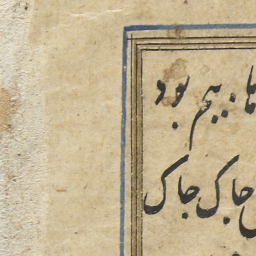 ها. بیم بود
چاک چاک